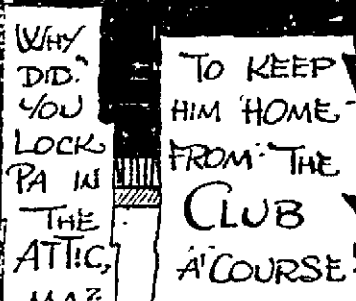 WHY
DID
YOU
LOCK
PA IN
THE
ATTIC,
MA?
TO KEEP
HIM HOME
FROM THE
CLUB
A'COURSE!